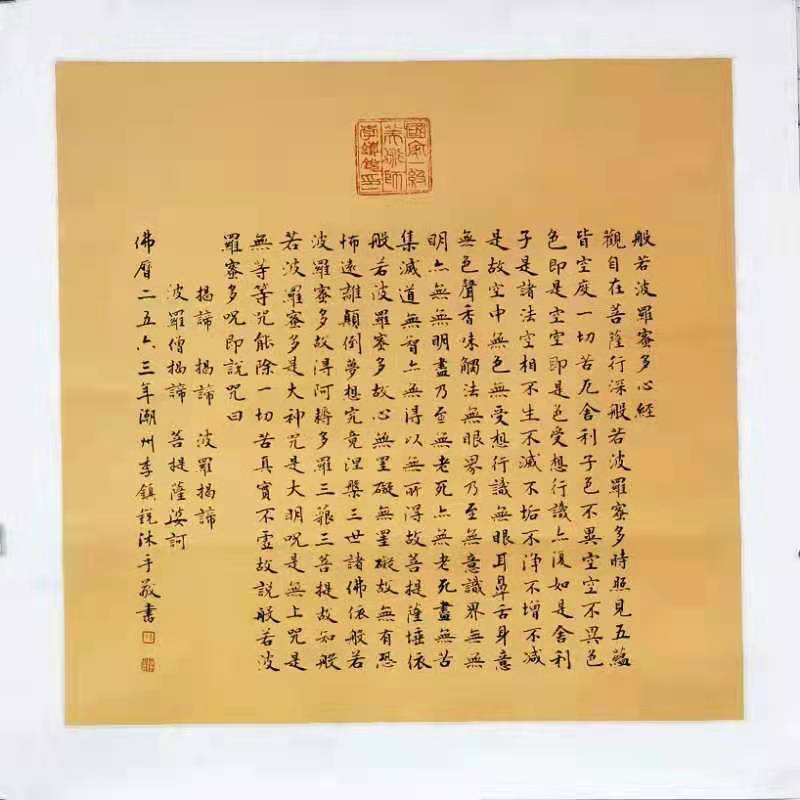 國家一級
美術師
李鎮銳印
般若波羅蜜多心經
觀自在菩薩行深般若波羅蜜多時照見五蘊
皆空度一切苦厄舍利子色不異空空不異色
色即是空空即是色受想行識亦復如是舍利
子是諸法空相不生不滅不垢不淨不增不減
是故空中無色無受想行識無眼耳鼻舌身意
無色聲香味觸法無眼界乃至無意識界無無
明亦無無明盡乃至無老死亦無老死盡無苦
集滅道無智亦無得以無所得故菩提薩埵依
般若波羅蜜多故心無罣礙無罣礙故無有恐
怖遠離顛倒夢想究竟涅槃三世諸佛依般若
波羅蜜多故得阿耨多羅三藐三菩提故知般
若波羅蜜多是大神咒是大明咒是無上咒是
無等等咒能除一切苦真實不虛故說般若波
羅蜜多咒即說咒曰
揭諦 揭諦 波羅揭諦
波羅僧揭諦 菩提薩婆訶
佛曆二五六三年潮州李鎮銳沐手敬書